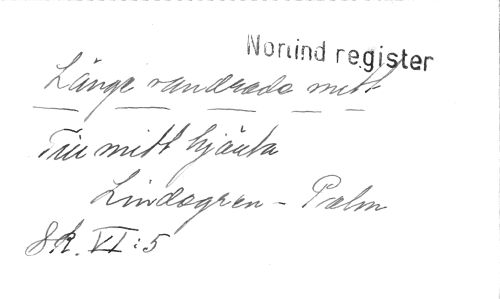 Nortind register
Länge vandrade mitt
Till mitt hjärta
Lindogren - Palm
SK. VI : 5